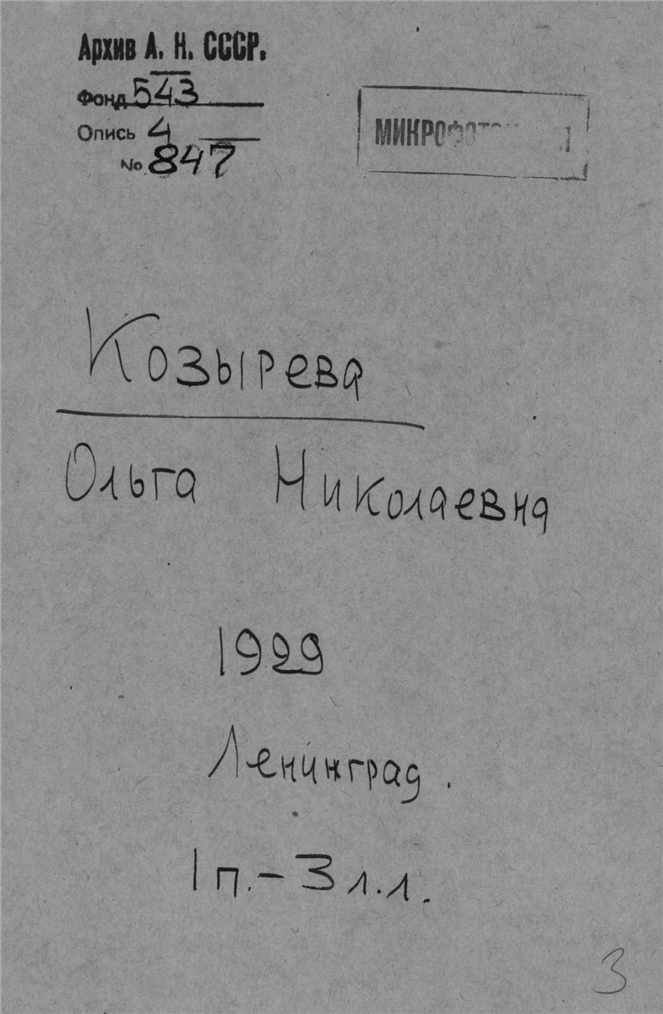 Архив А. Н. СССР.
Фонд 543
Опись 4
No 847
Козырева
Ольга Николаевна
1929
Ленинград.
1 п. – 3 л.л.
3